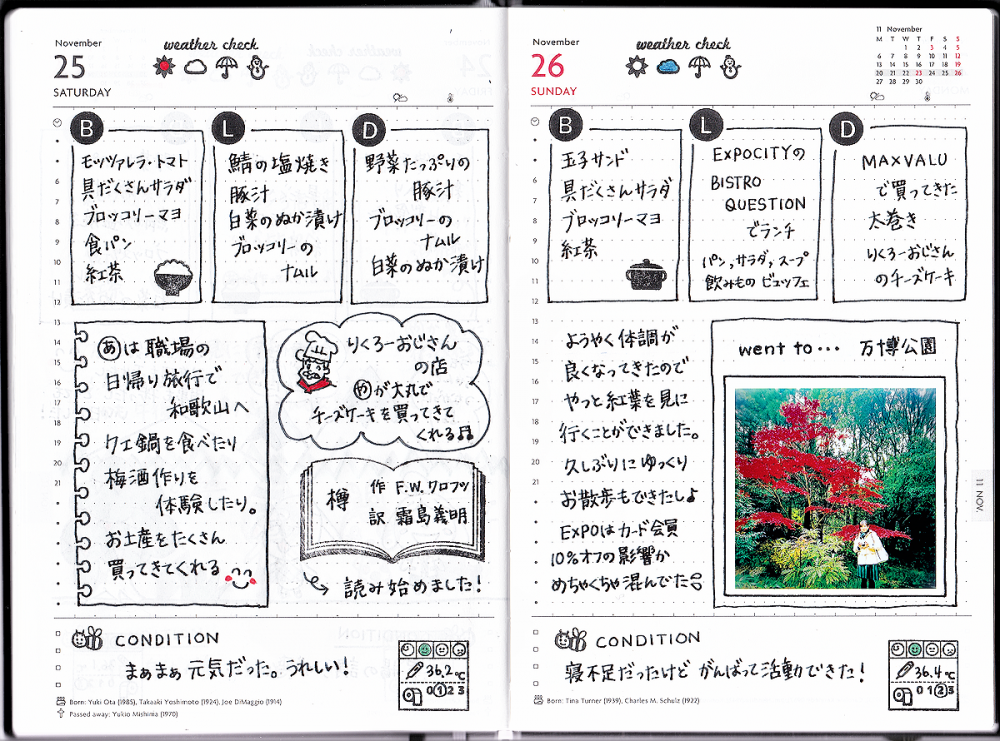 November
25
SATURDAY
weather check
B
モッツァレラ・トマト
具だくさんサラダ
ブロッコリーマヨ
食パン
紅茶
L
鯖の塩焼き
豚汁
白菜のぬか漬け
ブロッコリーの
ナムル
D
野菜たっぷりの
豚汁
ブロッコリーの
ナムル
白菜のぬか漬け
7
8
9
10
11
12
13
14
15
16
17
18
19
20
21
あは職場の
日帰り旅行で
和歌山へ
クエ鍋を食べたり
梅酒作りを
体験したり。
お土産をたくさん
買ってきてくれる
りくろーおじさん
の店
やが大丸で
チーズケーキを買ってきて
くれる♫
樽 作 F.W.クロフツ
訳 霜島義明
読み始めました!
CONDITION
まぁまぁ元気だった。うれしい!
36.2℃
0 1 2 3
Born: Yuki Ota (1985), Takaaki Yoshimoto (1924), Joe DiMaggio (1914)
Passed away: Yukio Mishima (1970)
November
26
SUNDAY
weather check
11 November
M T W T F S S
1 2 3 4 5
6 7 8 9 10 11 12
13 14 15 16 17 18 19
20 21 22 23 24 25 26
27 28 29 30
B
玉子サンド
具だくさんサラダ
ブロッコリーマヨ
紅茶
L
EXPOCITYの
BISTRO
QUESTION
でランチ
パン,サラダ,スープ
飲みもの ビュッフェ
D
MAXVALU
で買ってきた
太巻き
りくろーおじさん
のチーズケーキ
7
8
9
10
11
12
13
14
15
16
17
18
19
20
21
ようやく体調が
良くなってきたので
やっと紅葉を見に
行くことができました。
久しぶりにゆっくり
お散歩もできたしょ
EXPOはカード会員
10%オフの影響か
めちゃくちゃ混んでた
went to... 万博公園
11 NOV.
CONDITION
寝不足だったけど がんばって活動できた!
36.4℃
0 1 2 3
Born: Tina Turner (1939), Charles M. Schulz (1922)